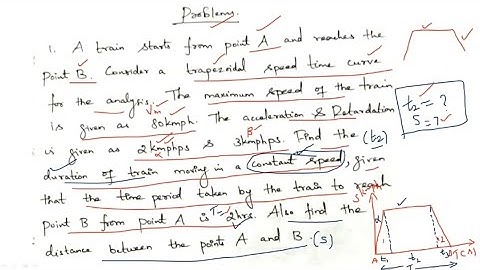 Problems.
1. A train starts from point A and reaches the
point B. Consider a trapezoidal speed time curve
for the analysis. The maximum speed of the train
Vm
is given as 80kmph. The acceleration & Retardation
is given as 2kmphps & 3kmphps. Find the (t2)
α β
duration of train moving in a constant speed, given
that the time period taken by the train to reach
point B from point A is T= 2hrs. Also find the
distance between the points A and B. (S)
t2 = ?
S = ?
A t1 t2 t3 T(s)
T